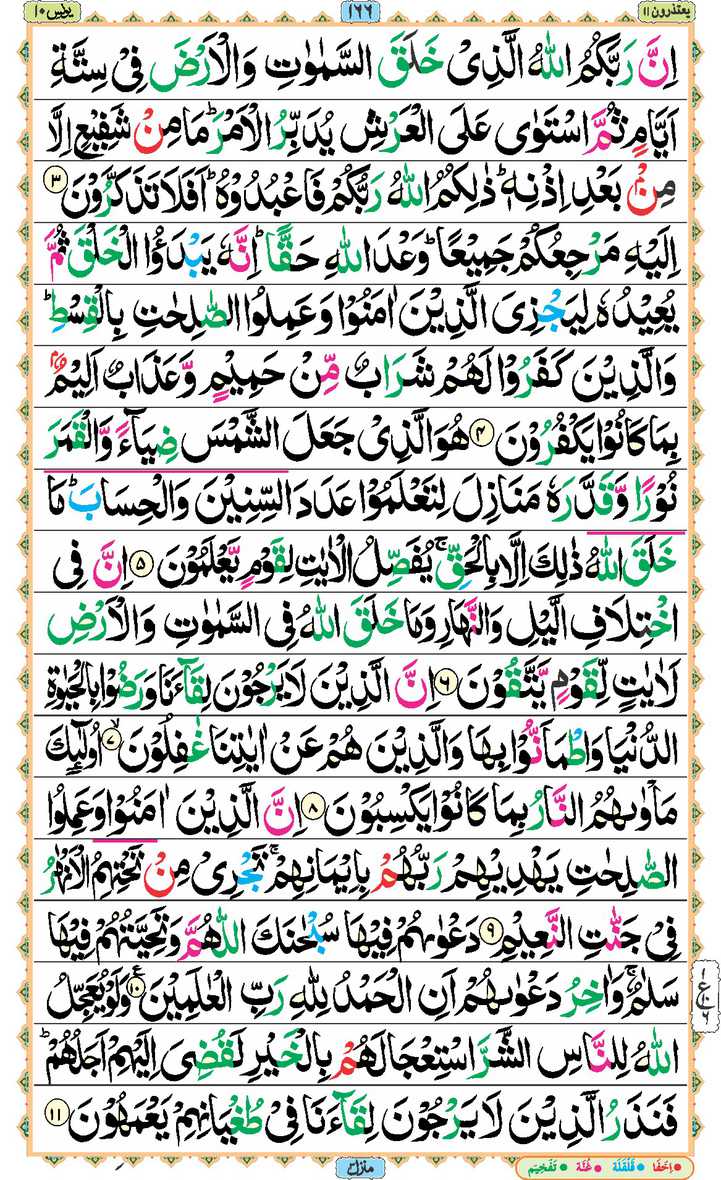 یعتذرون ۱۱
۱۶۶
یونس ۱۰
اِنَّ رَبَّكُمُ اللّٰهُ الَّذِیْ خَلَقَ السَّمٰوٰتِ وَالْاَرْضَ فِیْ سِتَّةِ
اَیَّامٍ ثُمَّ اسْتَوٰی عَلَی الْعَرْشِ یُدَبِّرُ الْاَمْرَ ؕ مَا مِنْ شَفِیْعٍ اِلَّا
مِنْۢ بَعْدِ اِذْنِهٖ ؕ ذٰلِكُمُ اللّٰهُ رَبُّكُمْ فَاعْبُدُوْهُ ؕ اَفَلَا تَذَكَّرُوْنَ ۳
اِلَیْهِ مَرْجِعُكُمْ جَمِیْعًا ؕ وَعْدَ اللّٰهِ حَقًّا ؕ اِنَّهٗ یَبْدَؤُا الْخَلْقَ ثُمَّ
یُعِیْدُهٗ لِیَجْزِیَ الَّذِیْنَ اٰمَنُوْا وَعَمِلُوا الصّٰلِحٰتِ بِالْقِسْطِ ؕ
وَالَّذِیْنَ كَفَرُوْا لَهُمْ شَرَابٌ مِّنْ حَمِیْمٍ وَّعَذَابٌ اَلِیْمٌۢ
بِمَا كَانُوْا یَكْفُرُوْنَ ۴ هُوَ الَّذِیْ جَعَلَ الشَّمْسَ ضِیَآءً وَّالْقَمَرَ
نُوْرًا وَّقَدَّرَهٗ مَنَازِلَ لِتَعْلَمُوْا عَدَدَ السِّنِیْنَ وَالْحِسَابَ ؕ مَا
خَلَقَ اللّٰهُ ذٰلِكَ اِلَّا بِالْحَقِّ ۚ یُفَصِّلُ الْاٰیٰتِ لِقَوْمٍ یَّعْلَمُوْنَ ۵ اِنَّ فِی
اخْتِلَافِ الَّیْلِ وَالنَّهَارِ وَمَا خَلَقَ اللّٰهُ فِی السَّمٰوٰتِ وَالْاَرْضِ
لَاٰیٰتٍ لِّقَوْمٍ یَّتَّقُوْنَ ۶ اِنَّ الَّذِیْنَ لَا یَرْجُوْنَ لِقَآءَنَا وَرَضُوْا بِالْحَیٰوةِ
الدُّنْیَا وَاطْمَاَنُّوْا بِهَا وَالَّذِیْنَ هُمْ عَنْ اٰیٰتِنَا غٰفِلُوْنَ ۙ ۷ اُولٰٓئِكَ
مَاْوٰىهُمُ النَّارُ بِمَا كَانُوْا یَكْسِبُوْنَ ۸ اِنَّ الَّذِیْنَ اٰمَنُوْا وَعَمِلُوا
الصّٰلِحٰتِ یَهْدِیْهِمْ رَبُّهُمْ بِاِیْمَانِهِمْ ۚ تَجْرِیْ مِنْ تَحْتِهِمُ الْاَنْهٰرُ
فِیْ جَنّٰتِ النَّعِیْمِ ۹ دَعْوٰىهُمْ فِیْهَا سُبْحٰنَكَ اللّٰهُمَّ وَتَحِیَّتُهُمْ فِیْهَا
سَلٰمٌ ۚ وَاٰخِرُ دَعْوٰىهُمْ اَنِ الْحَمْدُ لِلّٰهِ رَبِّ الْعٰلَمِیْنَ ۱۰ وَلَوْ یُعَجِّلُ
اللّٰهُ لِلنَّاسِ الشَّرَّ اسْتِعْجَالَهُمْ بِالْخَیْرِ لَقُضِیَ اِلَیْهِمْ اَجَلُهُمْ ؕ
فَنَذَرُ الَّذِیْنَ لَا یَرْجُوْنَ لِقَآءَنَا فِیْ طُغْیَانِهِمْ یَعْمَهُوْنَ ۱۱
اِخْفَا قَلْقَلَة غُنَّة تَفْخِیْم